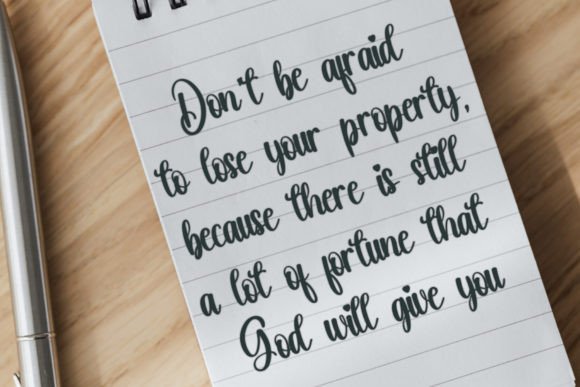 Don't be afraid
to lose your property,
because there is still
a lot of fortune that
God will give you